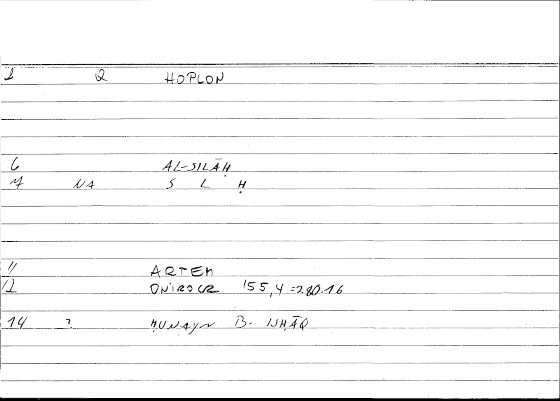 1 Q HOPLON
6 AL-SILĀḤ
7 NA S L Ḥ
11 ARTEM
12 ONIROCR 155,4 = 280.16
14 ? ḤUNAYN B. ISḤĀQ